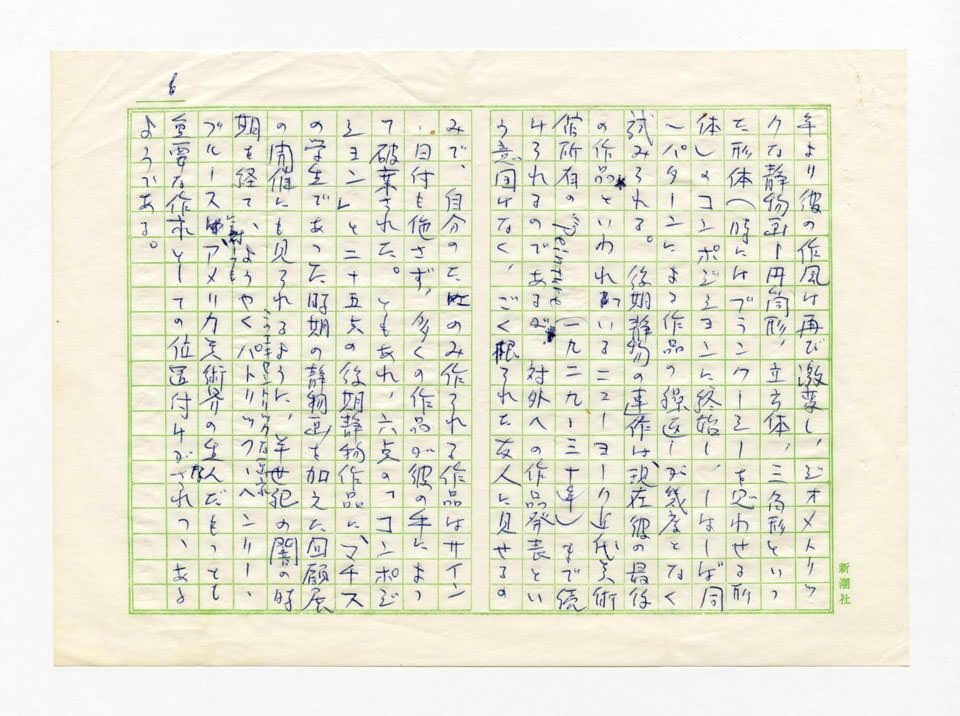 6
年より彼の作風は再び激変し、ジオメトリッ
クな静物画ー円筒形、立方体、三角形といっ
た形体(時にはブランクーシーを思わせる形
体)のコンポジションに終始し、しばしば同
一パターンによる作品の繰返しが幾度となく
試みられる。 後期静物の連作は、現在彼の最後
の作品といわれているニューヨーク近代美術
館所有の "Peinture" (一九二九ー三十年) まで続
けられるのである 対外への作品発表とい
う意図はなく、ごく限られた友人に見せるの
みで、自分の のみ作られる作品はサイン
・日付も施さず、多くの作品が彼の手によっ
て破棄された。 ともあれ、六点の「コンポジ
ション」と二十五点の後期静物作品に、マチス
の学生であった時期の静物画を加えた回顧展
の開催にも見られるように、半世紀の闇の時
期を経て、ようやくパトリック・ヘンリー・
ブルースはアメリカ美術界の生んだもっとも
重要な作家としての位置付けがされつゝある
ようである。
新潮社